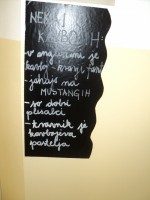 NEKAJ O
KAVBOJIH:
- v angleščini je
- jahajo na
MUSTANGIH
- so dobri
plesalci
- travnik je
kavbojeva
postelja